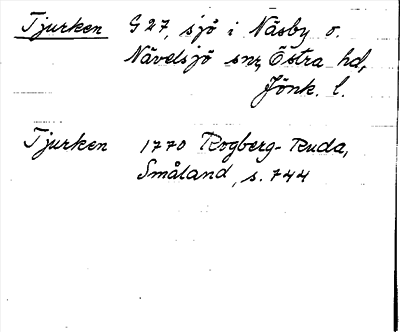 Tjurken G 27, sjö i Näsby o.
Nävelsjö snr, Östra hd,
Jönk. l.
Tjurken 1770 Rogberg-Ruda,
Småland, s. 744